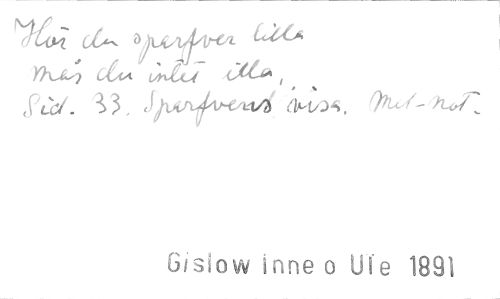 Hör du sparfver lilla
mår du intet illa,
Sid. 33. Sparfvens visa. Mel-not.
Gislow Inne o Ute 1891